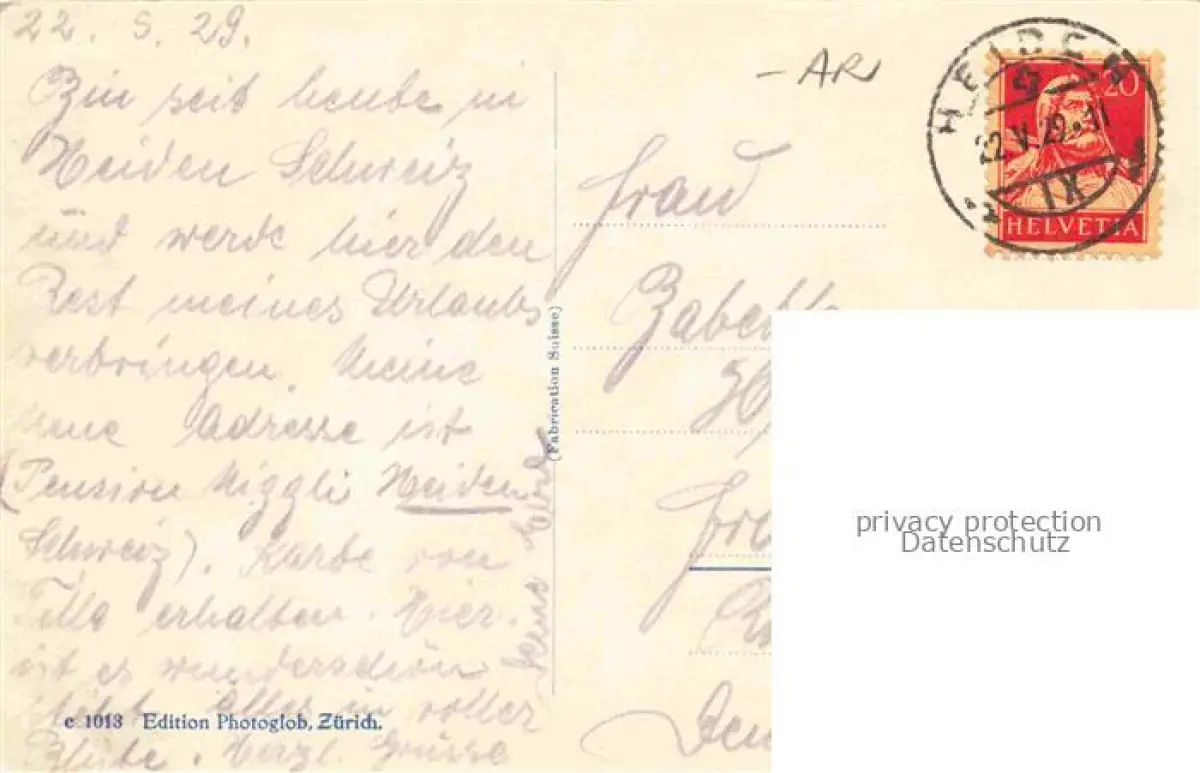 22. 5. 29.
Bin seit heute in
Heiden Schweiz
und werde hier den
Rest meines Urlaubs
verbringen. Meine
neue Adresse ist
(Pension Niggli Heiden
Schweiz). Karte von
Tilla erhalten. Hier
ist es wunderschön
Alles in voller
Blüte. Herzl. Grüsse
c 1013 Edition Photoglob, Zürich.
(Fabrication Suisse)
-AR
HEIDEN
22.V.29.-11
IX
20
HELVETIA
Frau
privacy protection
Datenschutz